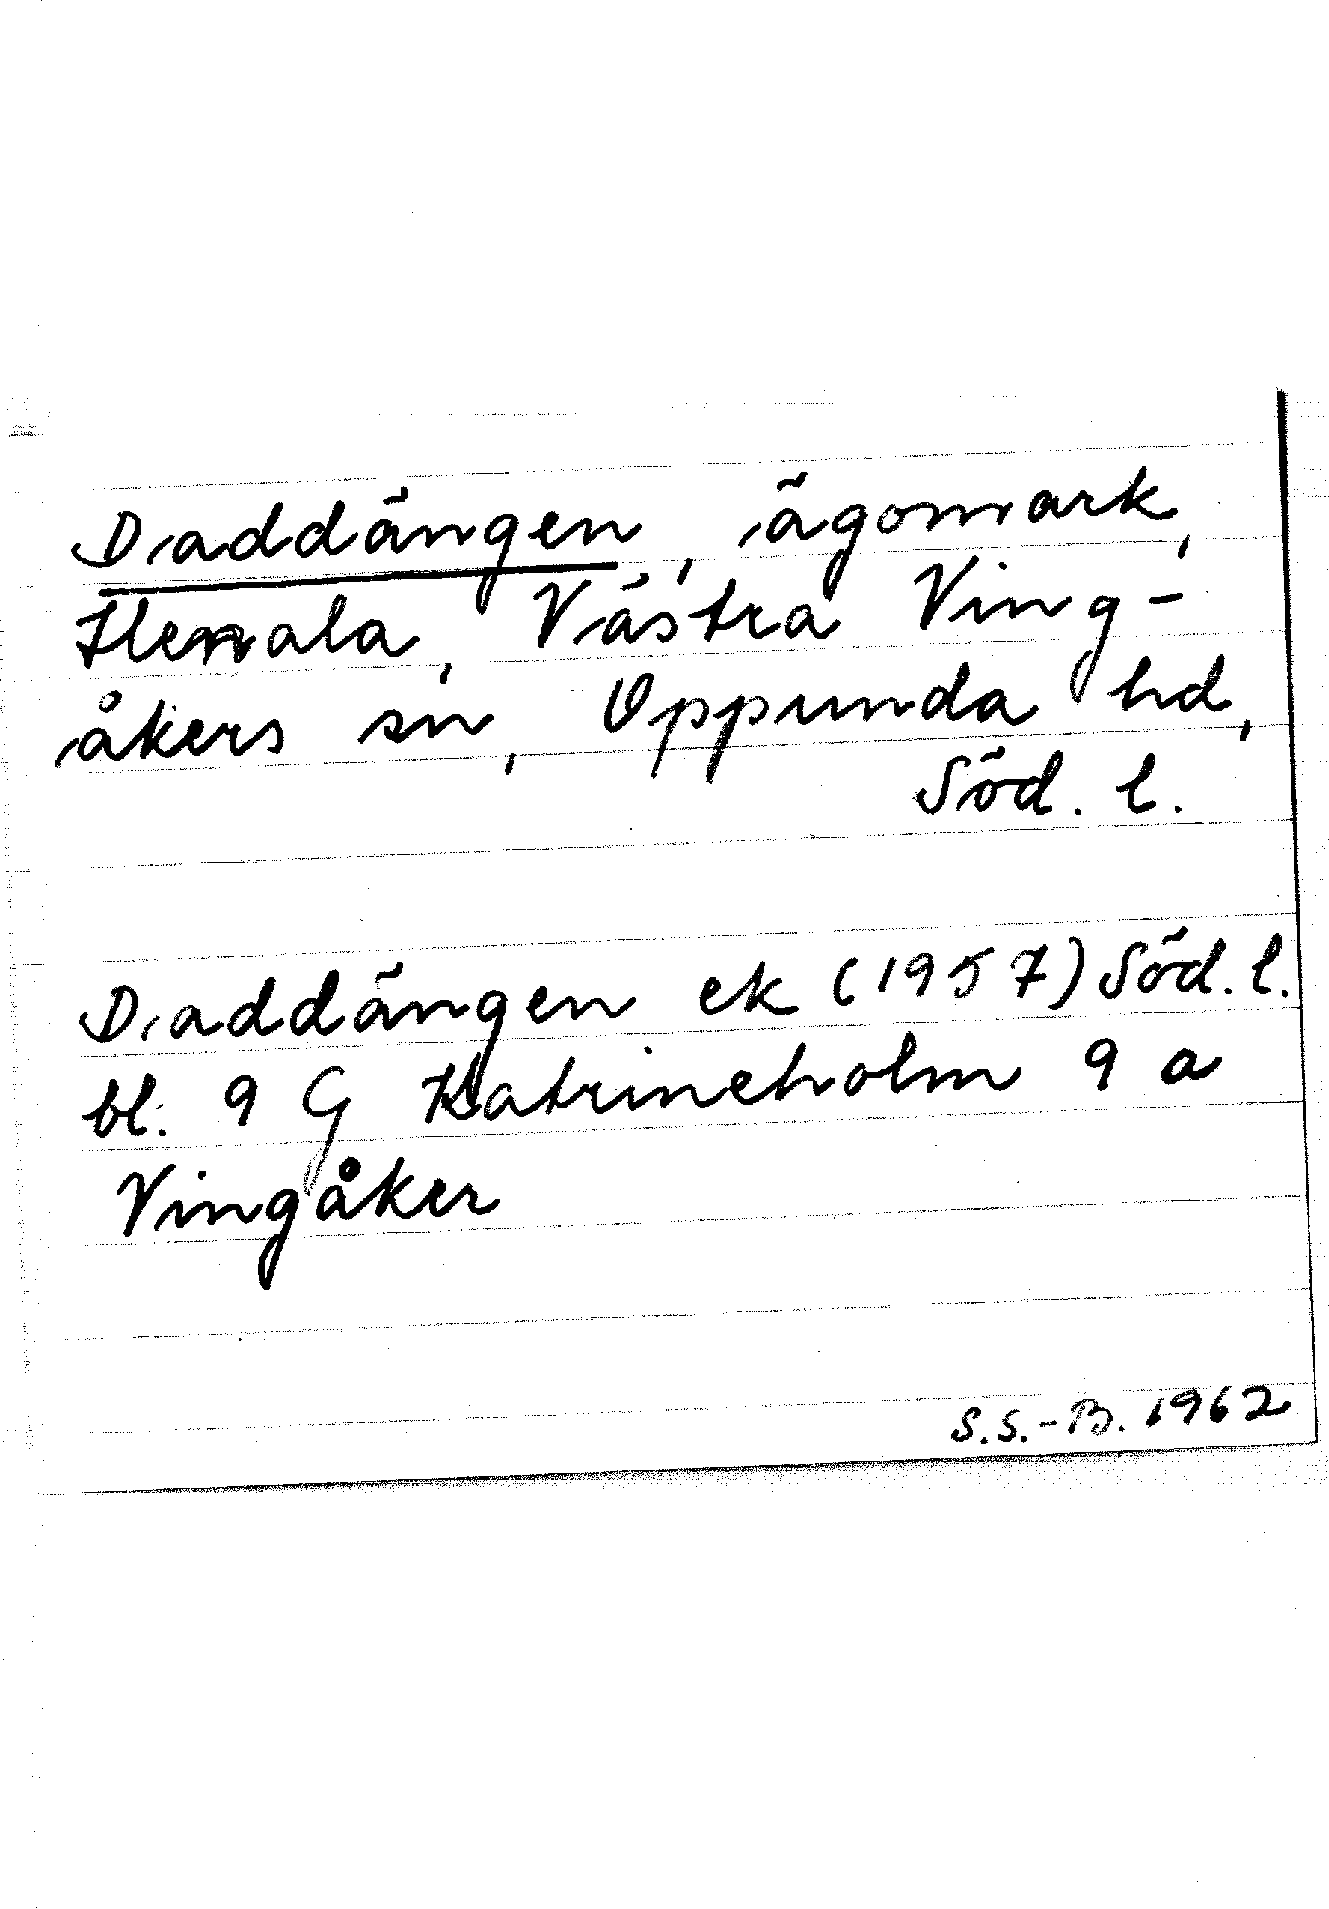 Daddängen, ägomark,
Hensala, Västra Ving-
åkers sn, Oppunda hd,
Söd. l.
Daddängen ek (1957) Söd. l.
bl. 9 G Katrineholm 9 a
Vingåker
S.S.-B. 1962